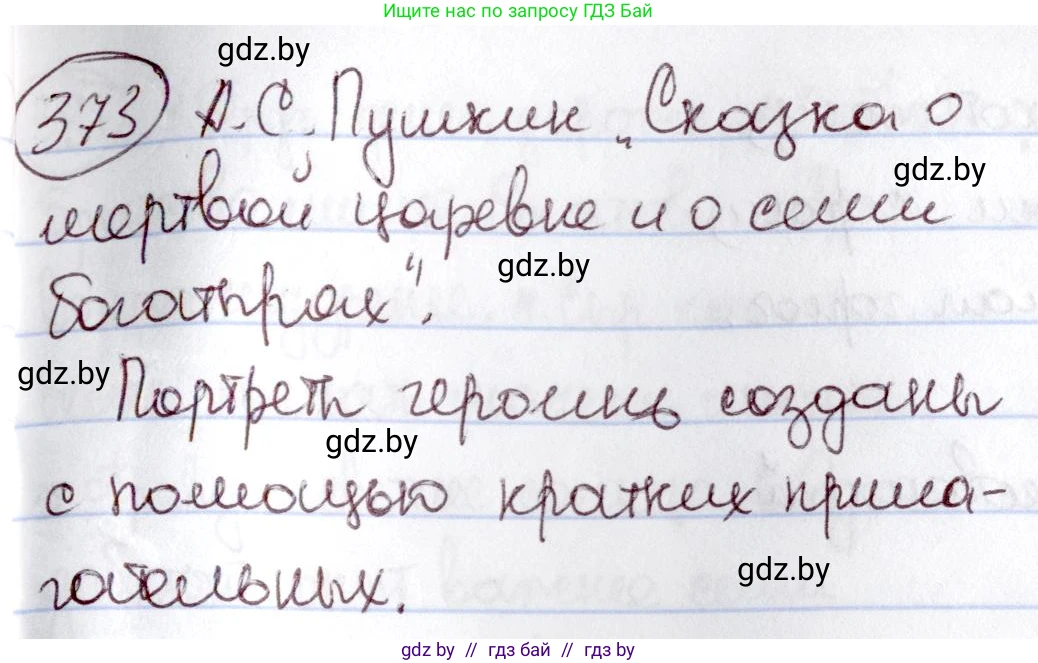 Ищите нас по запросу ГДЗ Бай
gdz.by
373 А.С. Пушкин „Сказка о
gdz.by
мертвой царевне и о семи
gdz.by
богатырях“.
gdz.by
Портреты героинь созданы
gdz.by
с помощью кратких прила-
gdz.by
гательных.
gdz.by // гдз бай // gdz.by